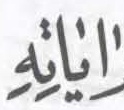 رَايَاتِهِ